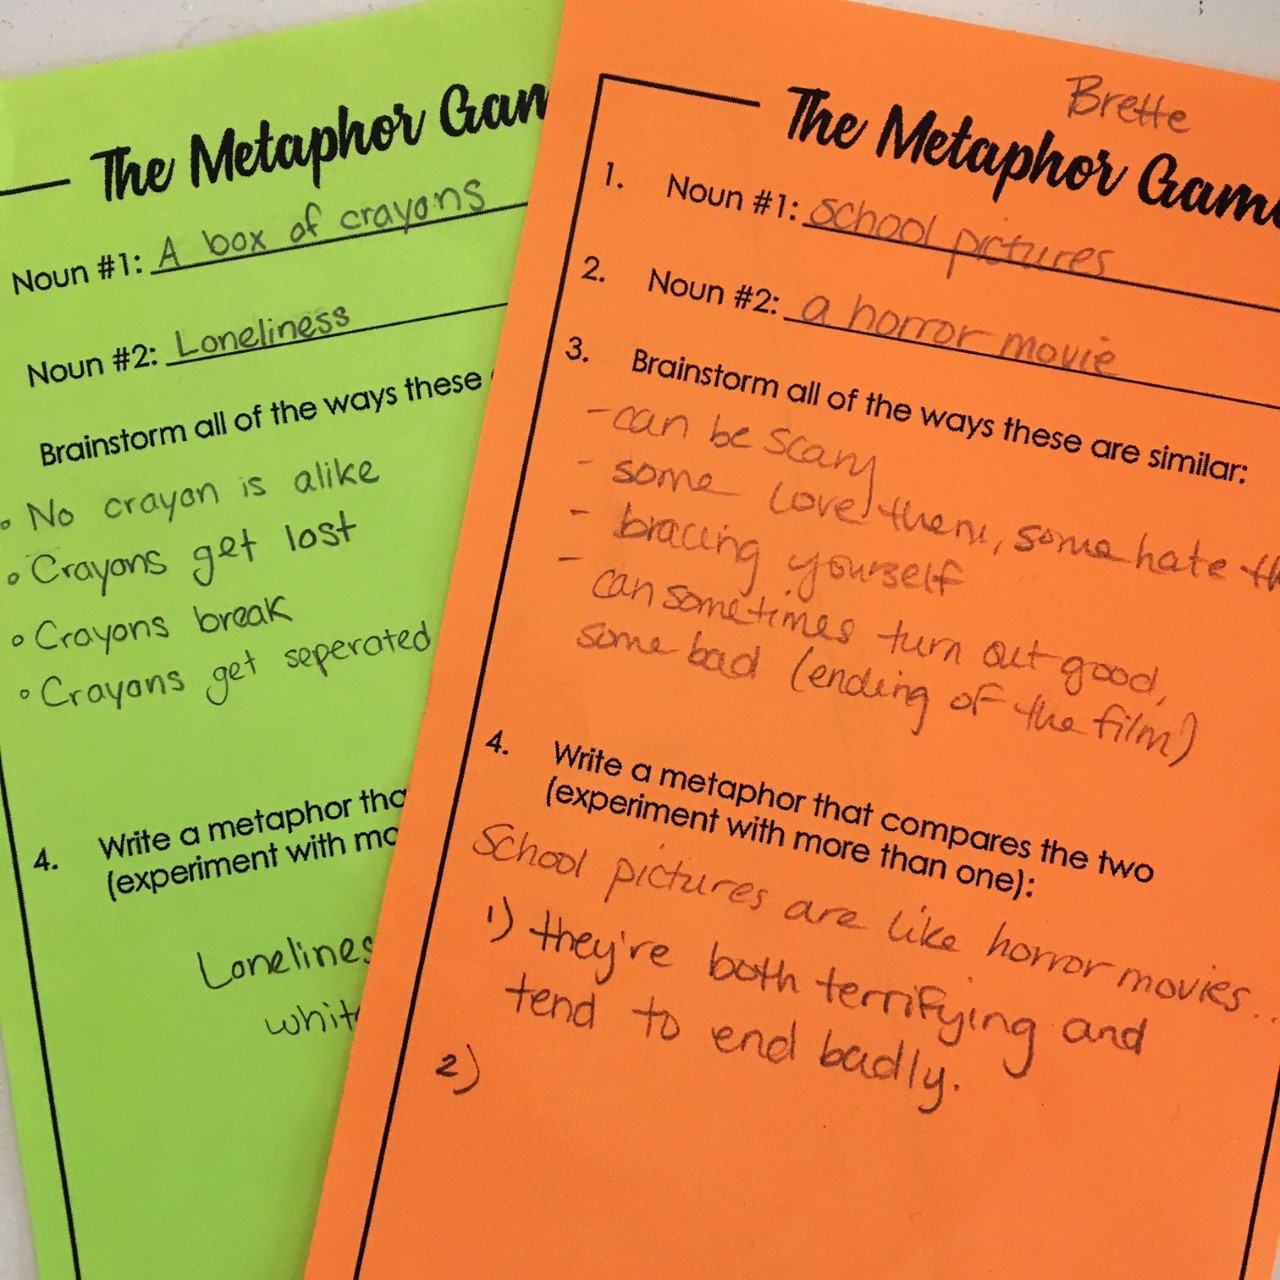 The Metaphor Gam
Noun #1: A box of crayons
Noun #2: Loneliness
Brainstorm all of the ways these
• No crayon is alike
• Crayons get lost
• Crayons break
• Crayons get seperated
4. Write a metaphor tha
(experiment with mo
Loneliness
white
Brette
The Metaphor Game
1. Noun #1: school pictures
2. Noun #2: a horror movie
3. Brainstorm all of the ways these are similar:
- can be scary
- some love them, some hate th
- bracing yourself
- can sometimes turn out good,
some bad (ending of the film)
4. Write a metaphor that compares the two
(experiment with more than one):
School pictures are like horror movies...
1) they're both terrifying and
tend to end badly.
2)